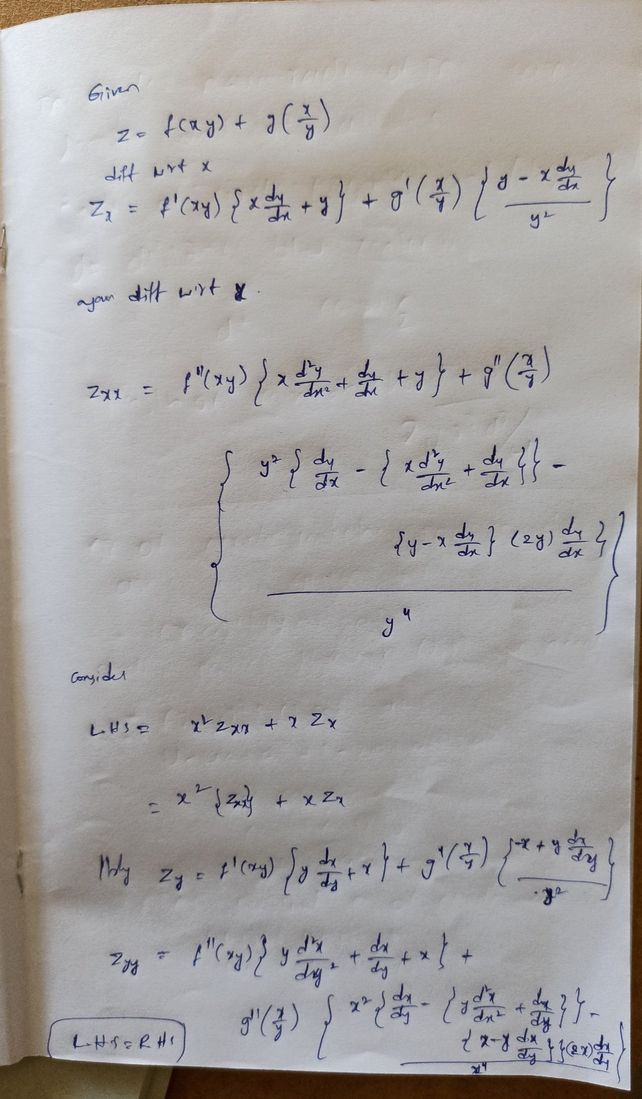 Given
z = f(xy) + g(x/y)
diff w.r.t x
Z_x = f'(xy) { x dy/dx + y } + g'(x/y) { (y - x dy/dx) / y² }
again diff w.r.t x.
Z_xx = f''(xy) { x d²y/dx² + dy/dx + y } + g''(x/y)
{ y² { dy/dx - { x d²y/dx² + dy/dx } } -
{ y - x dy/dx } (2y) dy/dx }
y⁴ }
Consider
LHS = x² Z_xx + x Z_x
= x² {Z_xx} + x Z_x
|||ly Z_y = f'(xy) { y dx/dy + x } + g'(x/y) { (-x + y dx/dy) / y² }
Z_yy = f''(xy) { y d²x/dy² + dx/dy + x } +
g''(x/y) { x² { dx/dy - { y d²x/dx² + dx/dy } } -
LHS = RHS { x - y dx/dy } } (2x) dx/dy
x⁴